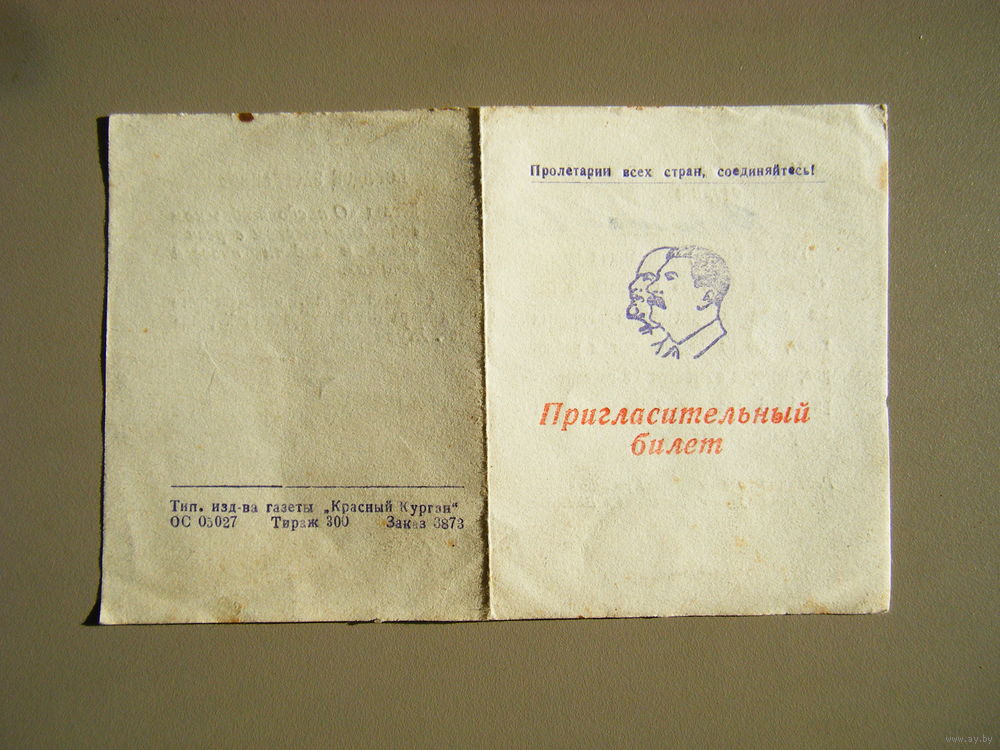 Тип. изд-ва газеты „Красный Курган“
ОС 05027 Тираж 300 Заказ 3873
Пролетарии всех стран, соединяйтесь!
Пригласительный
билет
www.ay.by